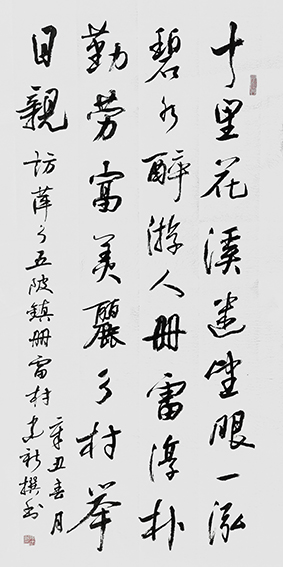 十里花溪迷望眼一泓
碧水醉游人冊雷淳朴
勤劳富美麗乡村举
目親
访萍乡五陂鎮冊雷村
辛丑春月
建新撰书